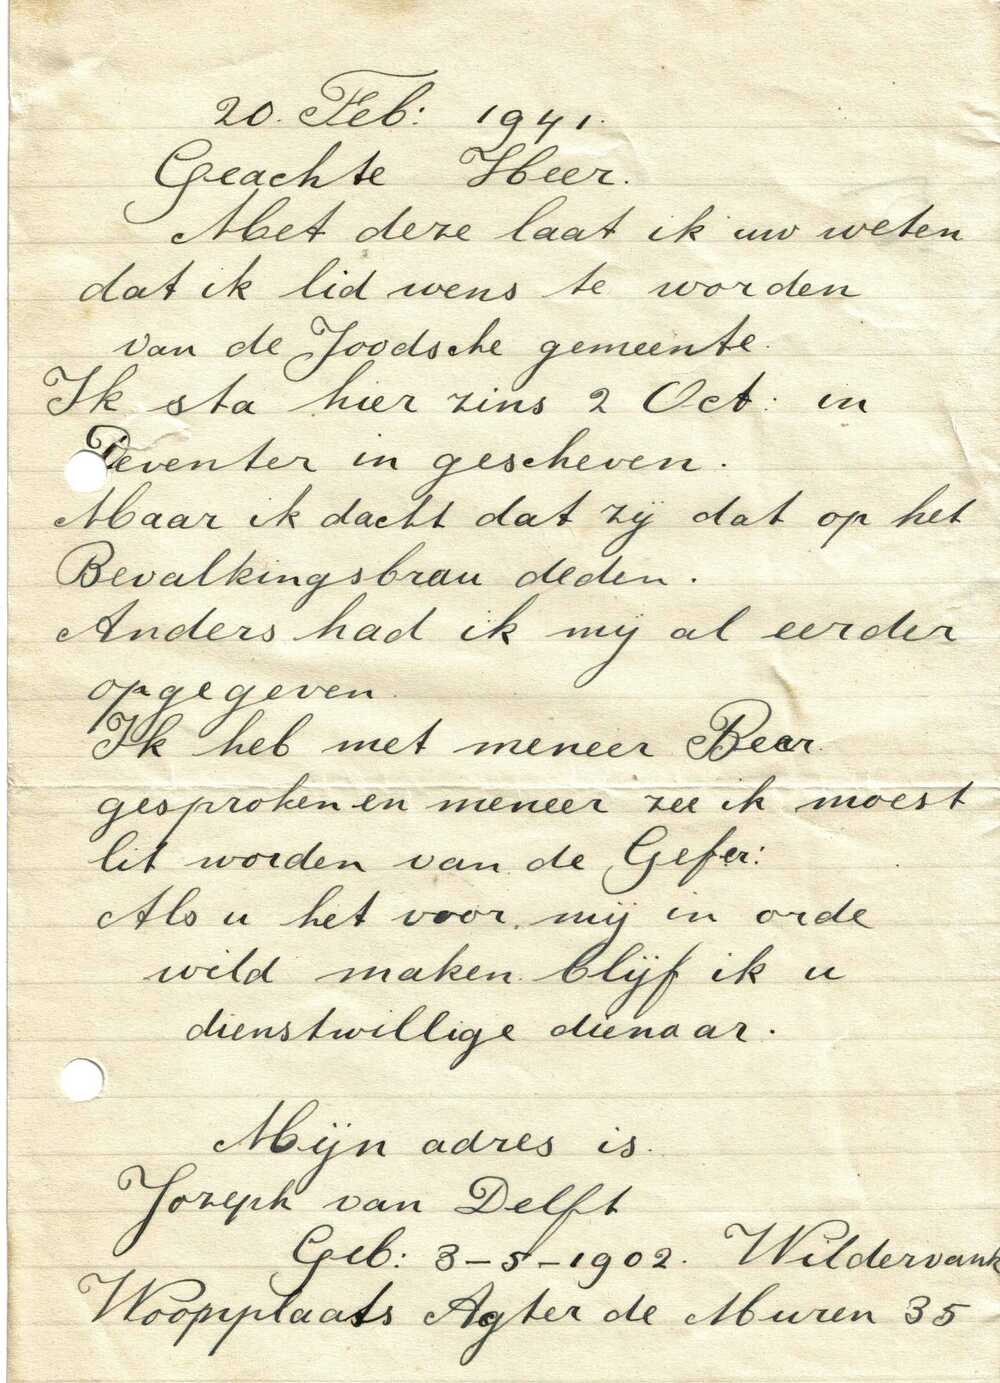 20. Feb: 1941.
Geachte Heer.
Met deze laat ik uw weten
dat ik lid wens te worden
van de Joodsche gemeente.
Ik sta hier zins 2 Oct: in
Deventer in gescheven.
Maar ik dacht dat zij dat op het
Bevalkingsbrau deden.
Anders had ik mij al eerder
opgegeven.
Ik heb met meneer Beer.
gesproken en meneer zee ik moest
lit worden van de Gefer:
Als u het voor mij in orde
wild maken blijf ik u
dienstwillige dienaar.
Mijn adres is.
Jozeph van Delft
Geb: 3-5-1902. Wildervank
Woopplaats Agter de Muren 35